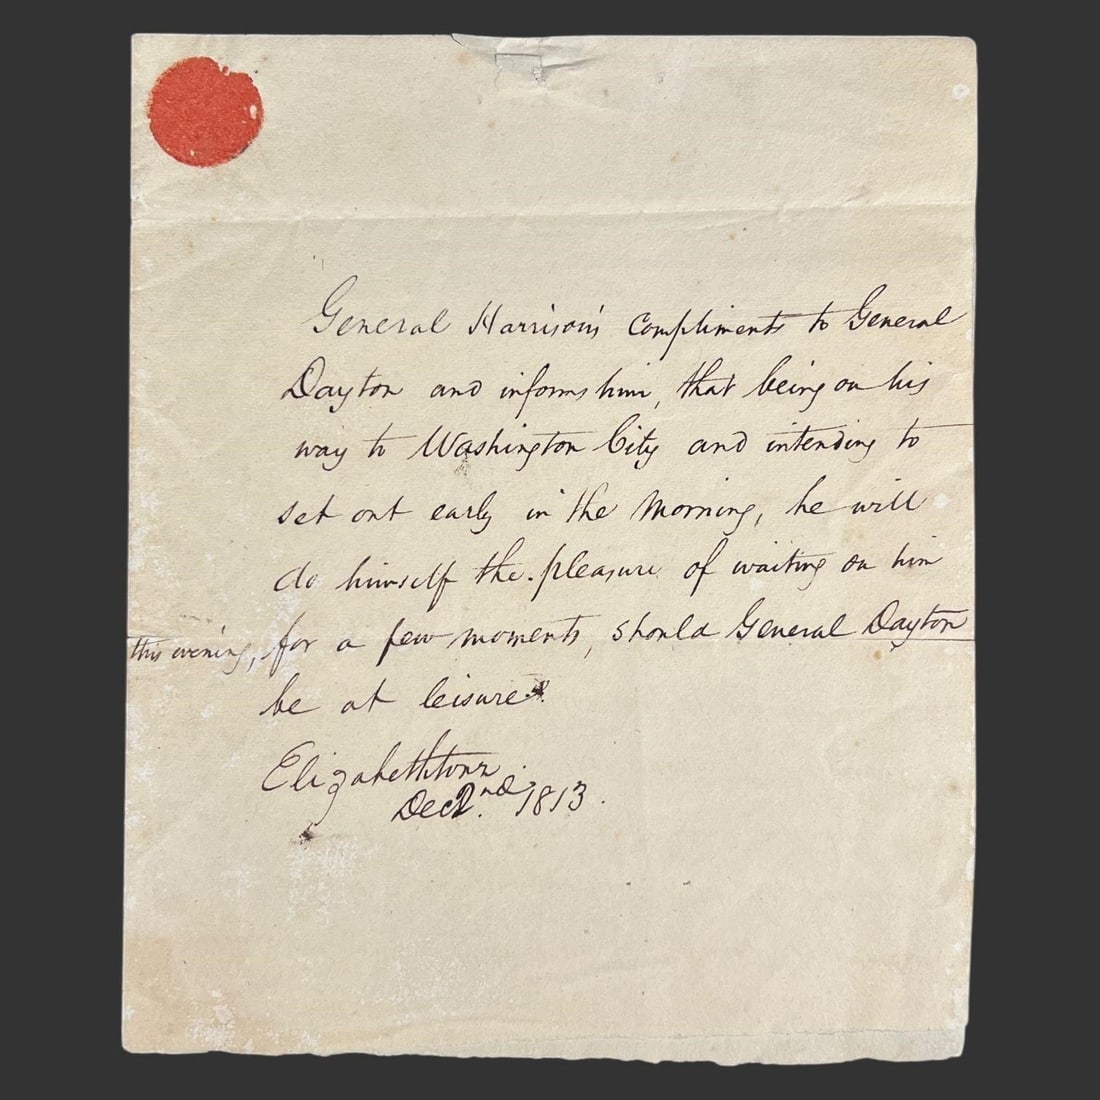 General Harrison's compliments to General
Dayton and informs him, that being on his
way to Washington City and intending to
set out early in the morning, he will
do himself the pleasure of waiting on him
this evening, for a few moments, should General Dayton
be at leisure.
Elizabethtown
Dec 2nd. 1813.